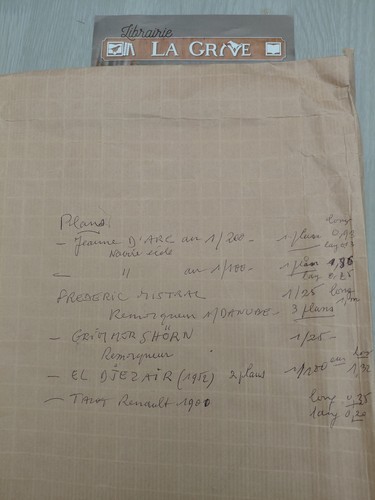 Librairie
LA GRIVE
Plans.
- Jeanne D'ARC au 1/200 - 1 plan long
Navire école larg
- " au 1/100 - 1 plan 1,86
larg 0,25
FREDERIC MISTRAL 1/25 long
Remorqueur /DANUBE - 3 plans
- GRIMMERSHÖRN 1/25 -
Remorqueur
- EL DJEZAIR (1952) 2 plans 1/100
- TACOT Renault 1900 long 0,35
larg 0,20